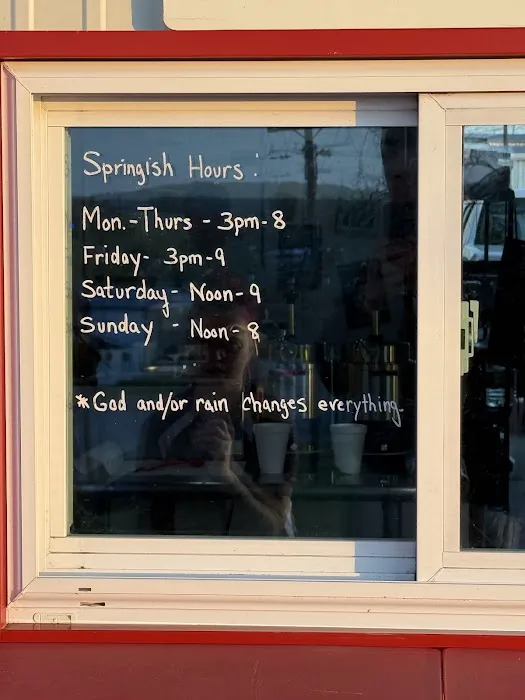 Springish Hours:
Mon.-Thurs - 3pm-8
Friday- 3pm-9
Saturday- Noon-9
Sunday - Noon-8
*God and/or rain changes everything.